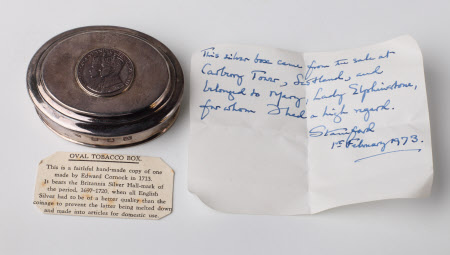 OVAL TOBACCO BOX.
This is a faithful hand-made copy of one
made by Edward Cornock in 1713.
It bears the Britannia Silver Hall-mark of
the period, 1697-1720, when all English
Silver had to be of a better quality than the
coinage to prevent the latter being melted down
and made into articles for domestic use
This silver box came from the sale at
Carberry Tower, Scotland, and
belonged to Mary, Lady Elphinstone,
for whom I had a high regard.
Stamford
1st February 1973.